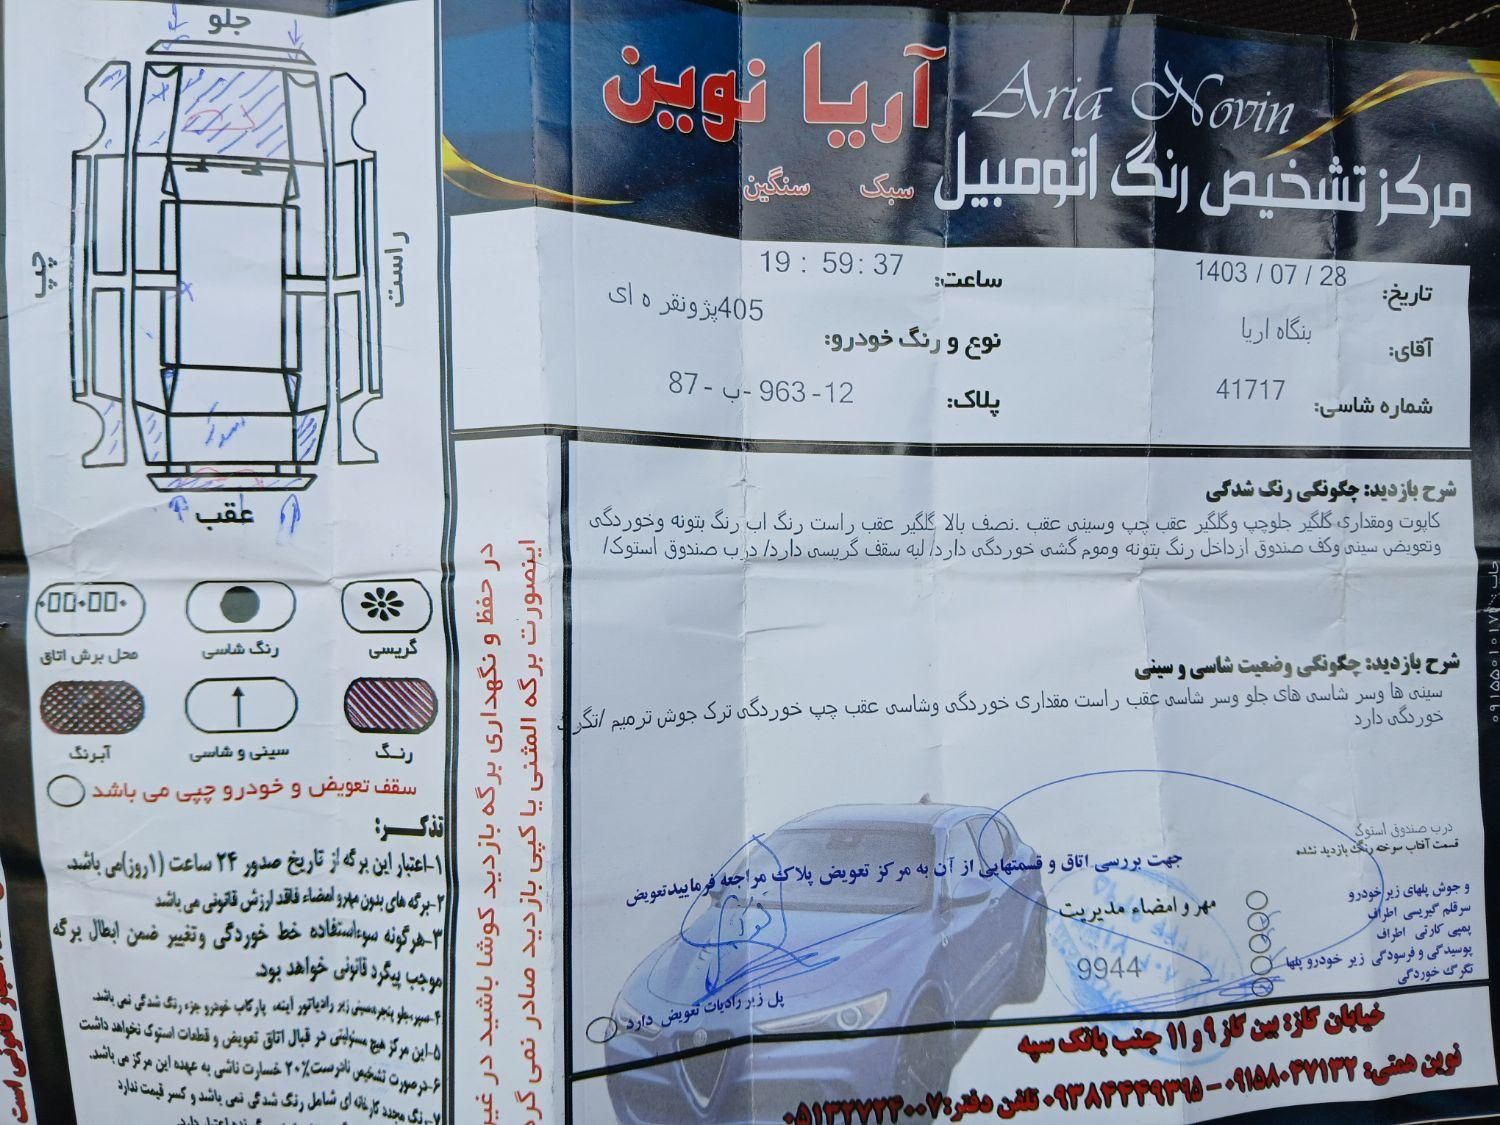 آریا نوین
Aria Novin
مرکز تشخیص رنگ اتومبیل
سبک سنگین
تاریخ: 1403 / 07 / 28
ساعت: 19 : 59 : 37
آقای: بنگاه اریا
نوع و رنگ خودرو: 405پژونقر ه ای
شماره شاسی: 41717
پلاک: 87- ب -963 -12
شرح بازدید: چگونگی رنگ شدگی
کاپوت ومقداری گلگیر جلوچپ وگلگیر عقب چپ وسینی عقب .نصف بالا گلگیر عقب راست رنگ اب رنگ بتونه وخوردگی
وتعویض سینی وکف صندوق ازداخل رنگ بتونه وموم گشی خوردگی دارد/ لبه سقف گریسی دارد/ درب صندوق استوک/
شرح بازدید: چگونگی وضعیت شاسی و سینی
سینی ها وسر شاسی های جلو وسر شاسی عقب راست مقداری خوردگی وشاسی عقب چپ خوردگی ترک جوش ترمیم /تگرگ
خوردگی دارد
درب صندوق استوک
قسمت آفتاب سوخه رنگ بازدید نشده
جهت بررسی اتاق و قسمتهایی از آن به مرکز تعویض پلاک مراجعه فرمایید تعویض
و جوش پلهای زیر خودرو
سرقلم گیریسی اطراف
پمپی کارتی اطراف
پوسیدگی و فرسودگی زیر خودرو پلها
تگرگ خوردگی
مهر و امضاء مدیریت
9944
پل زیر رادیات تعویض دارد
خیابان گاز: بین گاز ۹ و ۱۱ جنب بانک سپه
نوین همتی: ۰۹۱۵۸۰۴۷۱۳۲ - ۰۹۳۸۴۴۴۹۳۹۵ تلفن دفتر: ۰۵۱۳۲۷۲۴۰۰۷
در حفظ و نگهداری برگه بازدید کوشا باشید در غیر
اینصورت برگه المثنی یا کپی بازدید صادر نمی گرد
جلو
چپ
راست
استوک
عقب
گریسی
رنگ شاسی
محل برش اتاق
رنگ
سینی و شاسی
آبرنگ
سقف تعویض و خودرو چپی می باشد
تذکر:
۱-اعتبار این برگه از تاریخ صدور ۲۴ ساعت (۱روز)می باشد.
۲-برگه های بدون مهر و امضاء فاقد ارزش قانونی می باشد
۳-هرگونه سوءاستفاده خط خوردگی وتغییر ضمن ابطال برگه
موجب پیگرد قانونی خواهد بود.
۴-سپر،جلو پنجره،سینی زیر رادیاتور آینه، پارکاب خودرو جزء رنگ شدگی نمی باشد.
۵-این مرکز هیچ مسئولیتی در قبال اتاق تعویض و قطعات استوک نخواهد داشت
۶-درصورت تشخیص نادرست۲۰٪ خسارت ناشی به عهده این مرکز می باشد.
۷-رنگ مجدد کارخانه ای شامل رنگ شدگی نمی باشد و کسر قیمت ندارد